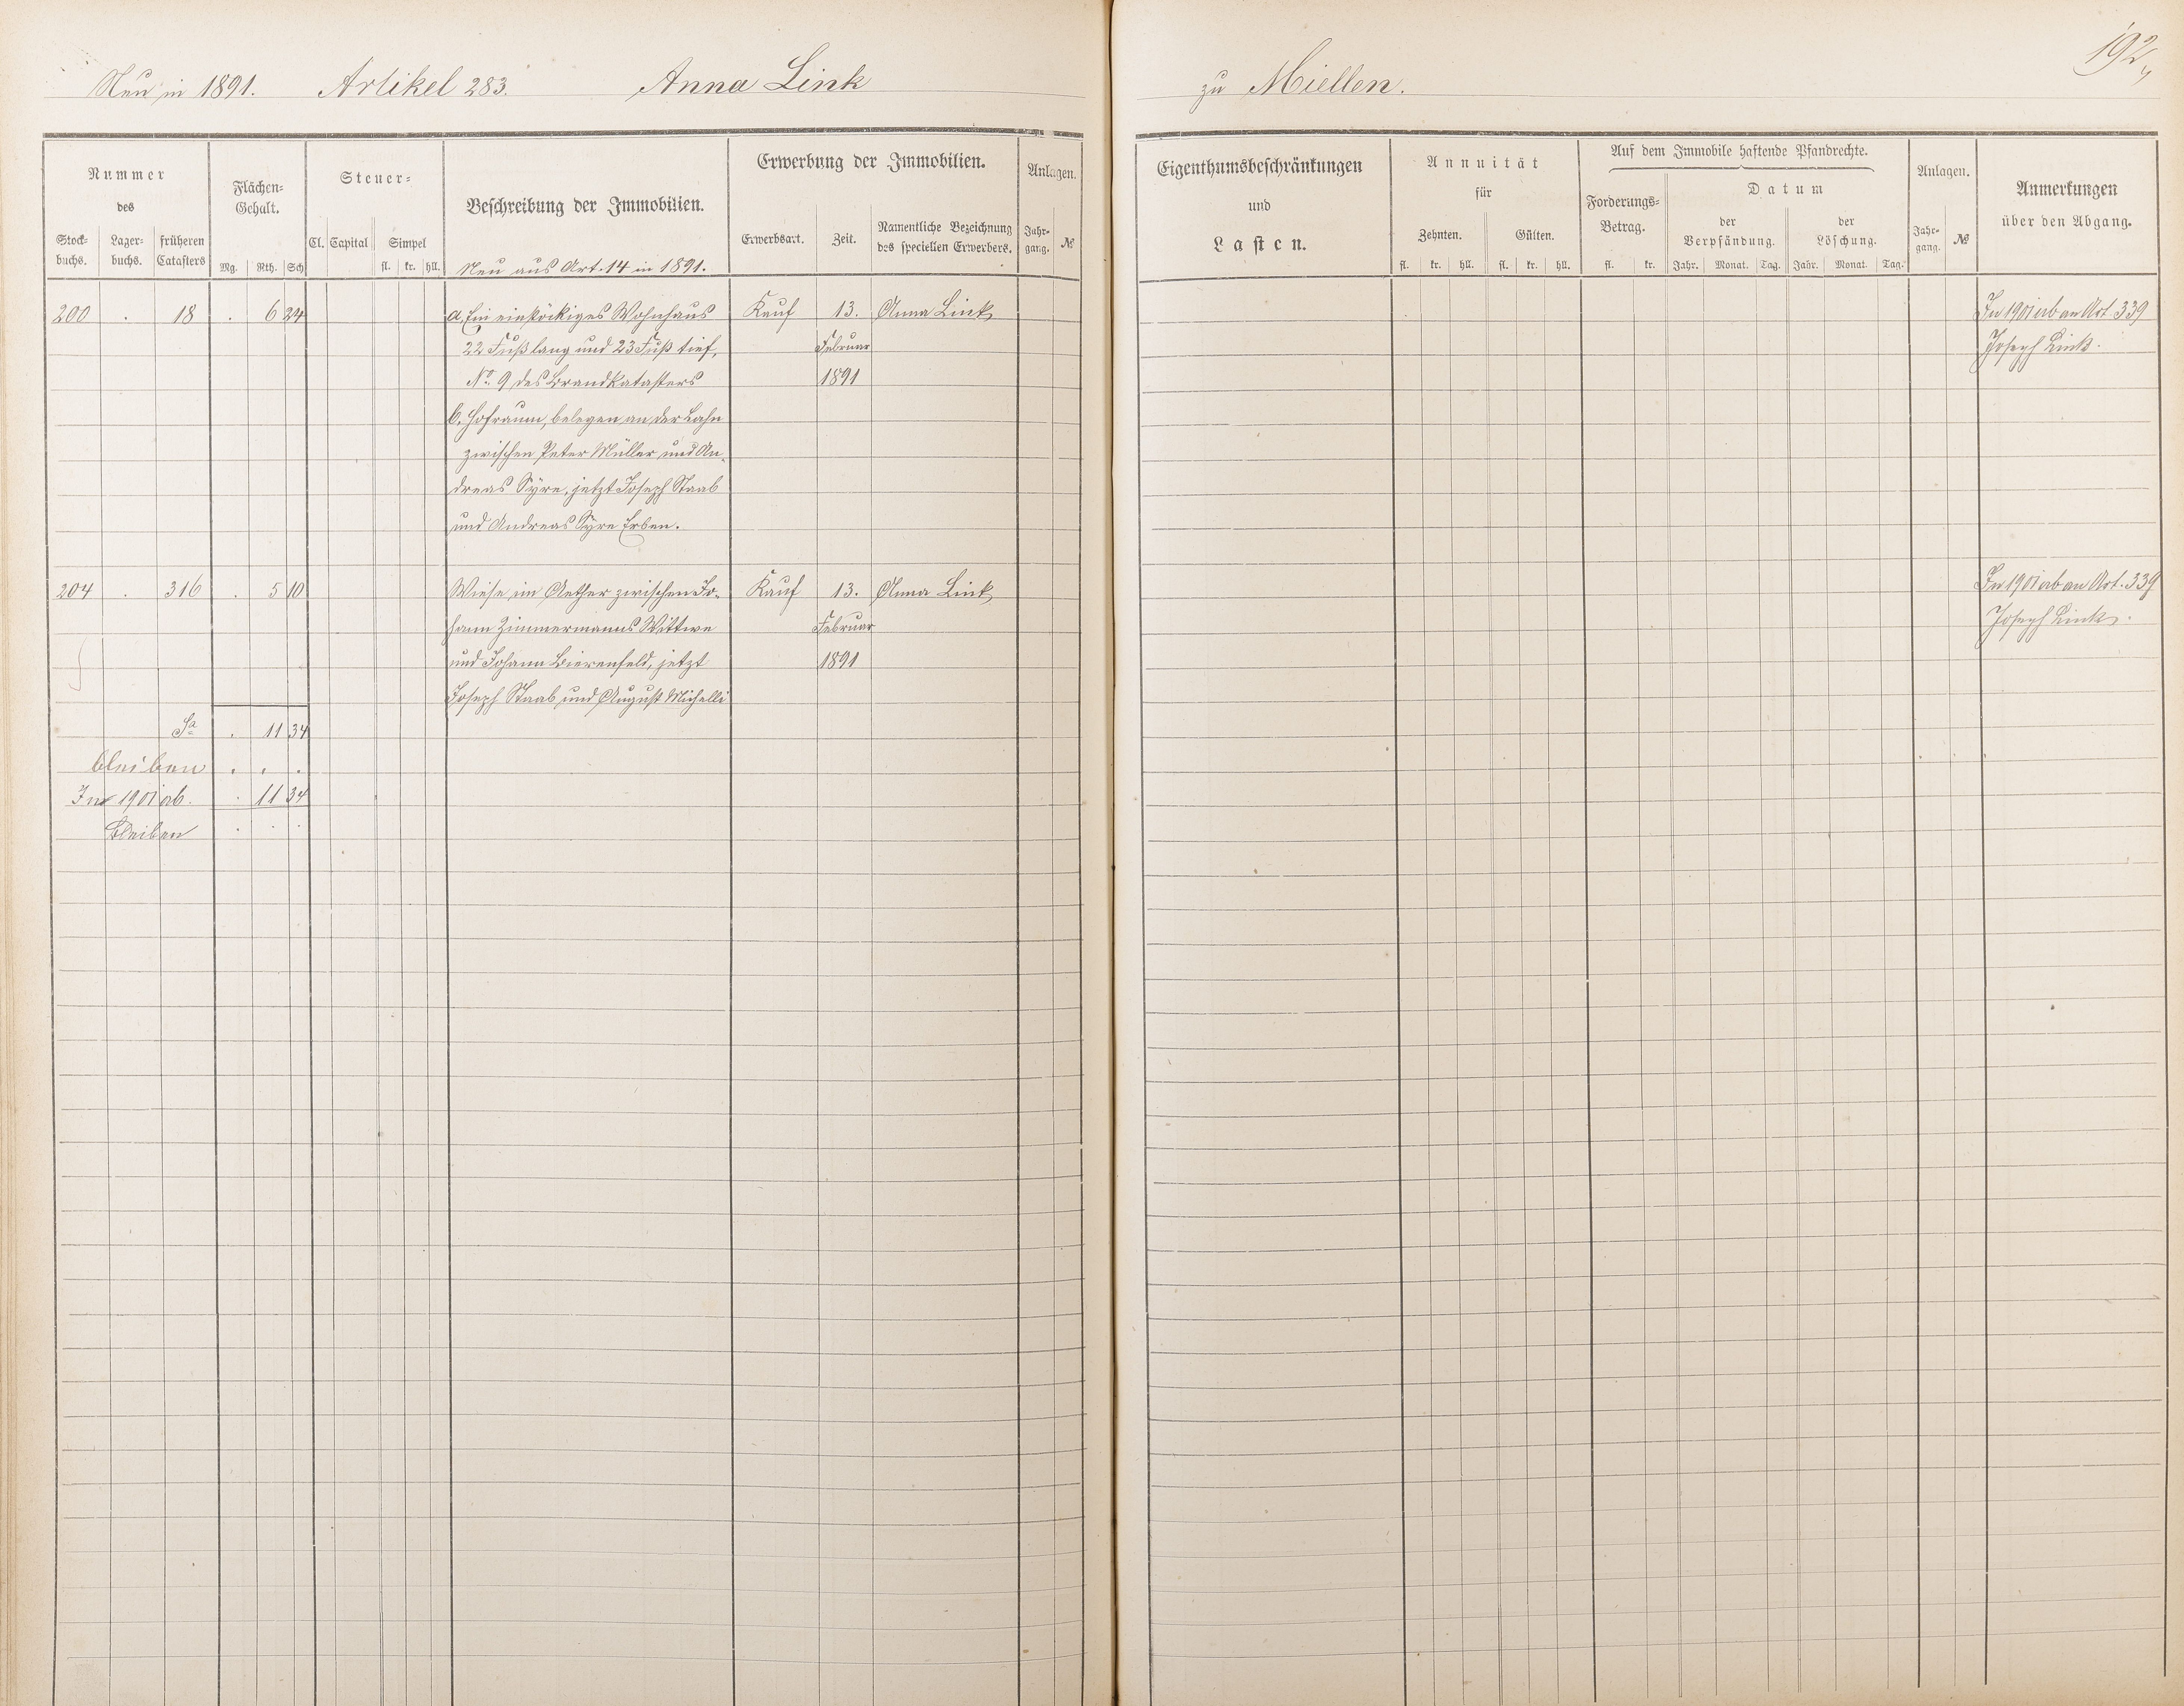 192
Neu in 1891. Artikel 283. Anna Link zu Miellen.
Nummer des
Stock-buchs. Lager-buchs. früheren Catasters
Flächen-Gehalt.
Mg. Rth. Sch.
Steuer-
Cl. Capital Simpel
fl. kr. hll.
Beschreibung der Immobilien.
Neu aus Art. 14 in 1891.
Erwerbung der Immobilien.
Erwerbsart. Zeit. Namentliche Bezeichnung des speciellen Erwerbers.
Anlagen.
Jahr-gang. №
Eigenthumsbeschränkungen
und
Lasten.
Annuität
für
Zehnten. Gülten.
fl. kr. hll. fl. kr. hll.
Auf dem Immobile haftende Pfandrechte.
Forderungs-Betrag.
fl. kr.
Datum
der Verpfändung. der Löschung.
Jahr. Monat. Tag. Jahr. Monat. Tag.
Anlagen.
Jahr-gang. №
Anmerkungen
über den Abgang.
200 . 18 . 6 24 a. Ein einstöckiges Wohnhaus Kauf 13. Anna Link In 1901 ab an Art. 339
22 Fuß lang und 23 Fuß tief, Februar Joseph Link.
No. 9 des Brandkatasters 1891
b. Hofraum, belegen an der Lahn
zwischen Peter Müller und An-
dreas Syre, jetzt Joseph Staab
und Andreas Syre Erben.
204 . 316 . 5 10 Wiese im Aether zwischen Jo- Kauf 13. Anna Link In 1901 ab an Art. 339
hann Zimmermanns Wittwe Februar Joseph Link.
und Johann Bierenfeld, jetzt 1891
Joseph Staab und August Michelli
Sa . 11 34
bleiben . . .
In 1901 ab. . 11 34
bleiben . . .